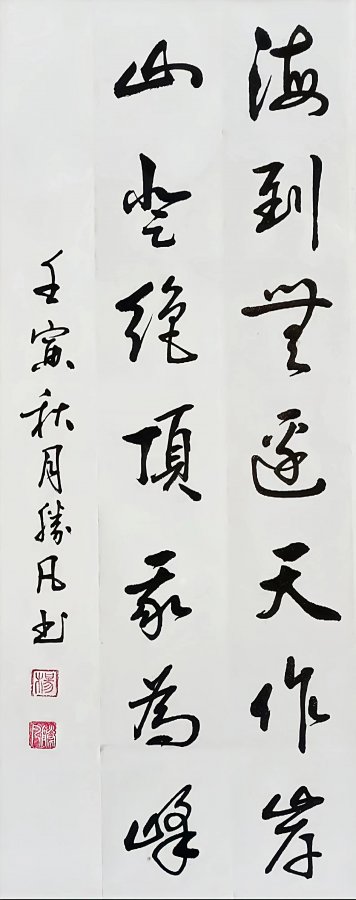 海到無邊天作岸
山登絶頂我為峰
壬寅秋月勝凡书
楊